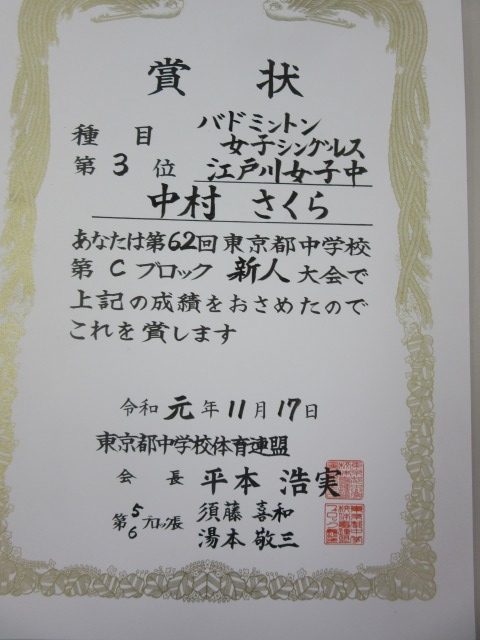 賞状
種目 バドミントン
女子シングルス
第3位 江戸川女子中
中村 さくら
あなたは第62回東京都中学校
第Cブロック 新人大会で
上記の成績をおさめたので
これを賞します
令和元年11月17日
東京都中学校体育連盟
会長 平本 浩実
第5 6ブロック長 須藤 喜和
湯本 敬三